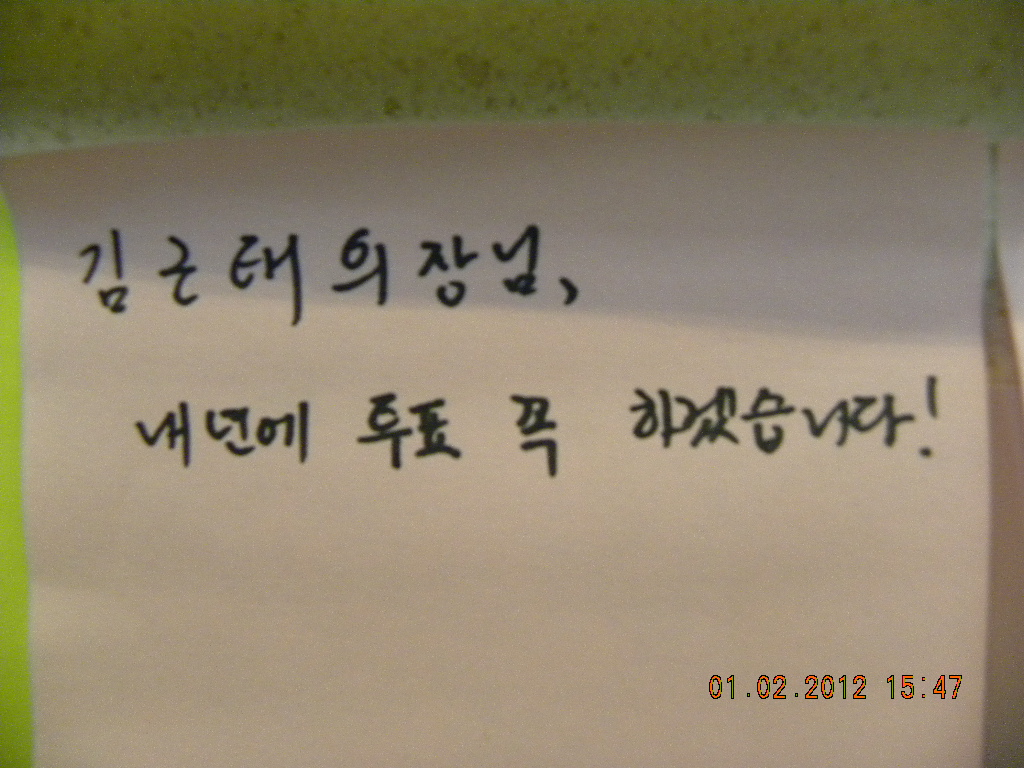 김근태 의장님,
내년에 투표 꼭 하겠습니다!
01.02.2012 15:47